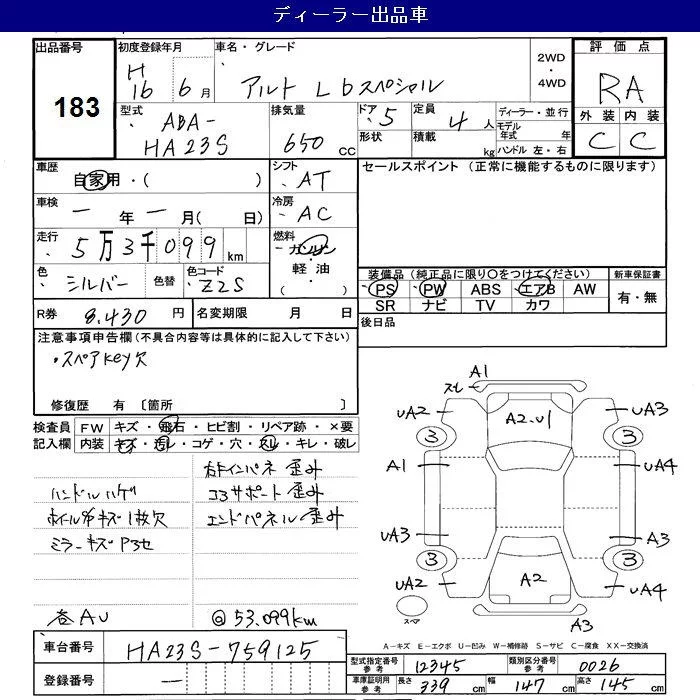 ディーラー出品車
出品番号
183
初度登録年月
H
16 6月
車名・グレード
アルト Lbスペシャル
2WD
・
4WD
評価点
RA
外装 内装
C C
型式
ABA-
HA23S
排気量
650 cc
ドア 5
定員 4 人
形状
積載 kg
ディーラー・並行
モデル年式 年
ハンドル 左・右
車歴
自家用・( )
シフト
AT
セールスポイント (正常に機能するものに限ります)
車検
一 年 一 月( 日)
冷房
AC
走行
5万3千099 km
燃料
ガソリン
・
軽油
( )
色
シルバー
色替
色コード
Z2S
装備品(純正品に限り○をつけてください)
新車保証書
PS PW ABS エアB AW
SR ナビ TV カワ
有・無
R券 8,430 円
名変期限 月 日
後日品
注意事項申告欄(不具合内容等は具体的に記入して下さい)
・スペアkey欠
修復歴 有 〔箇所 〕
検査員記入欄
FW キズ・飛石・ヒビ割・リペア跡・×要
内装 キズ・汚レ・コゲ・穴・スレ・キレ・破レ
右Fインパネ 歪み
ハンドルハゲ
コアサポート 歪み
ホイルカバーキズ1枚欠
エンドパネル 歪み
ミラーキズ
各AU
@53,099km
A1
スレ
UA2
A2.U1
UA3
3
3
A1
UA4
UA3
A3
3
3
UA2
A2
UA4
スペア
A3
A-キズ E-エクボ U-凹み W-補修跡 S-サビ C-腐食 XX-交換済
車台番号
HA23S-759125
登録番号
一
型式指定番号 参考 12345
類別区分番号 参考 0026
車庫証明用 参考
長さ 339 cm
幅 147 cm
高さ 145 cm